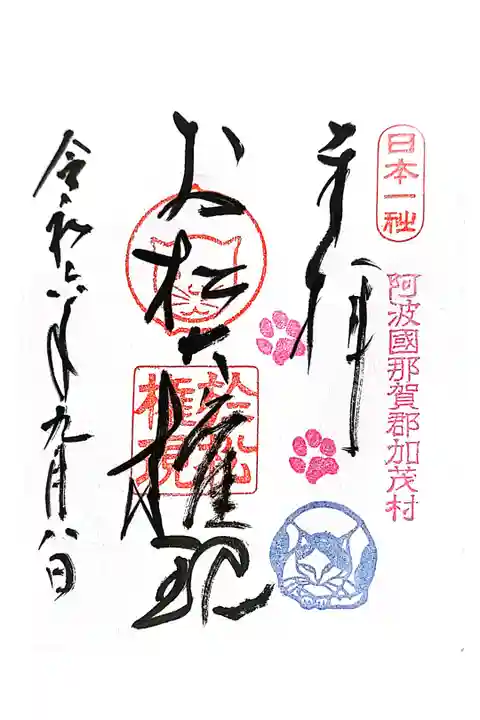 日本一社
阿波國那賀郡加茂村
奉拝
お松大権現
於松
権現
令和六年九月八日